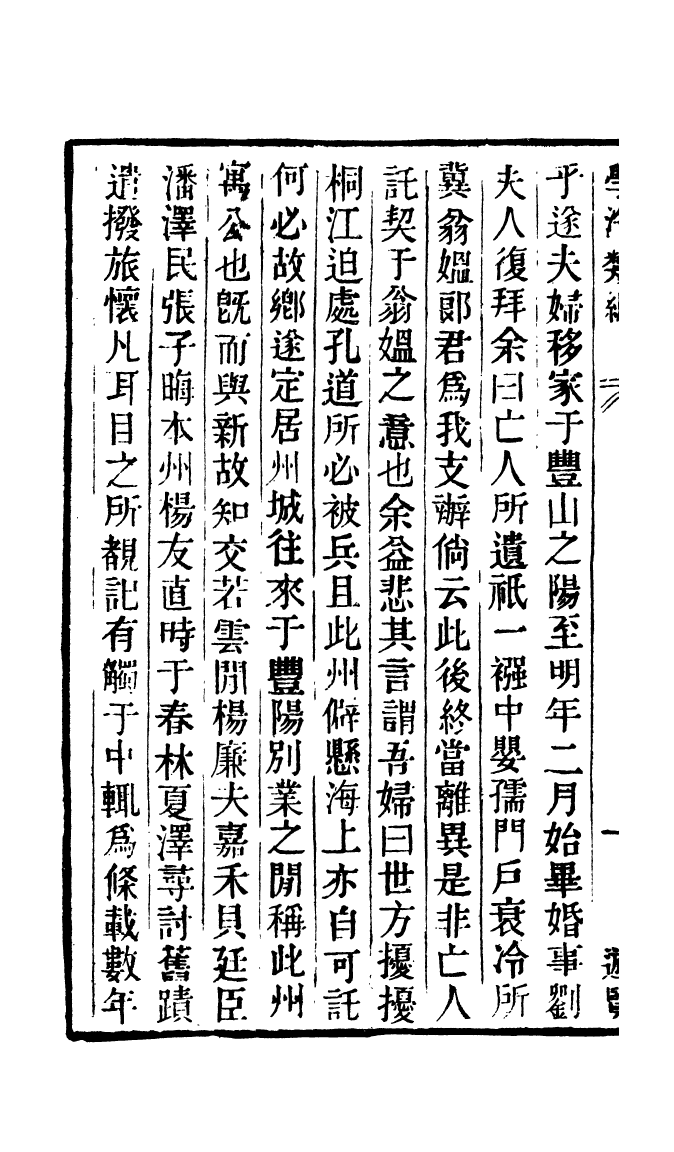 學海類編　一　遊覽
乎遂夫婦移家于豐山之陽至明年二月始畢婚事劉
夫人復拜余曰亡人所遺祇一襁中嬰孺門戶衰冷所
冀翁媼郎君爲我支辦倘云此後終當離異是非亡人
託契于翁媼之意也余益悲其言謂吾婦曰世方擾擾
桐江迫處孔道所必被兵且此州僻懸海上亦自可託
何必故鄉遂定居州城往來于豐陽別業之閒稱此州
寓公也旣而與新故知交若雲閒楊廉夫嘉禾貝廷臣
潘澤民張子晦本州楊友直時于春林夏澤蕁討舊蹟
遣撥旅懷凡耳目之所覩記有觸于中輒爲條載數年